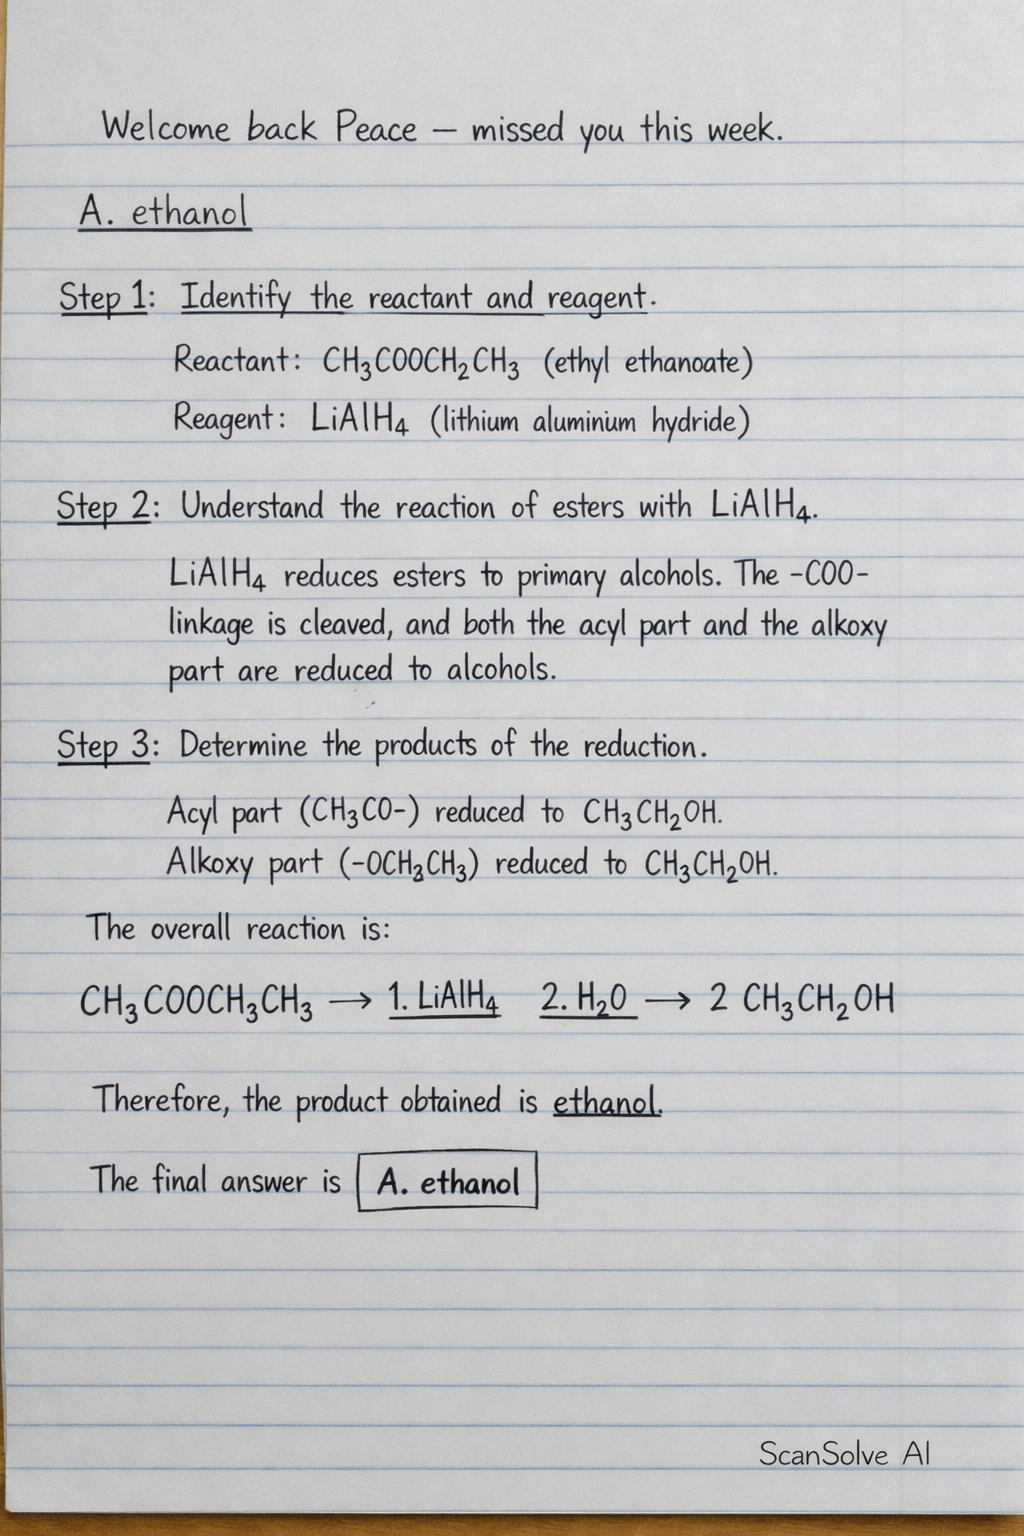 Welcome back Peace – missed you this week.
A. ethanol
Step 1: Identify the reactant and reagent.
Reactant: CH₃COOCH₂CH₃ (ethyl ethanoate)
Reagent: LiAlH₄ (lithium aluminium hydride)
Step 2: Understand the reaction of esters with LiAlH₄.
LiAlH₄ reduces esters to primary alcohols. The -COO-
linkage is cleaved, and both the acyl part and the alkoxy
part are reduced to alcohols.
Step 3: Determine the products of the reduction.
Acyl part (CH₃CO-) reduced to CH₃CH₂OH.
Alkoxy part (-OCH₂CH₃) reduced to CH₃CH₂OH.
The overall reaction is:
CH₃COOCH₃CH₃ → 1. LiAlH₄ 2. H₂O → 2 CH₃CH₂OH
Therefore, the product obtained is ethanol.
The final answer is A. ethanol
ScanSolve AI